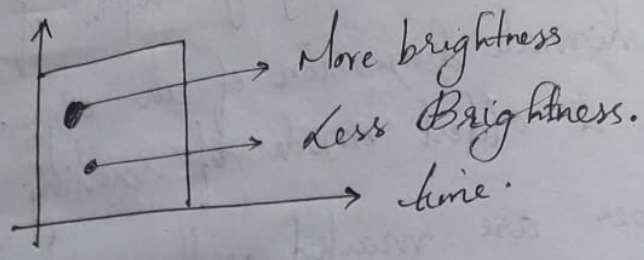 More brightness
Less Brightness.
time.